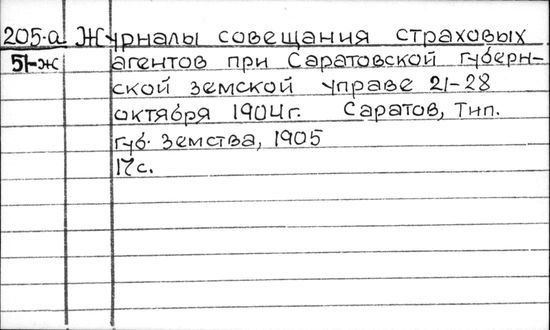 205-а Журналы совещания страховых
51-ж агентов при Саратовской губерн-
ской земской управе 21-28
октября 1904г. Саратов, Тип.
губ. земства, 1905
17с.